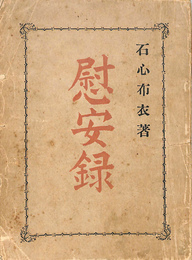 石心布衣著
慰安録